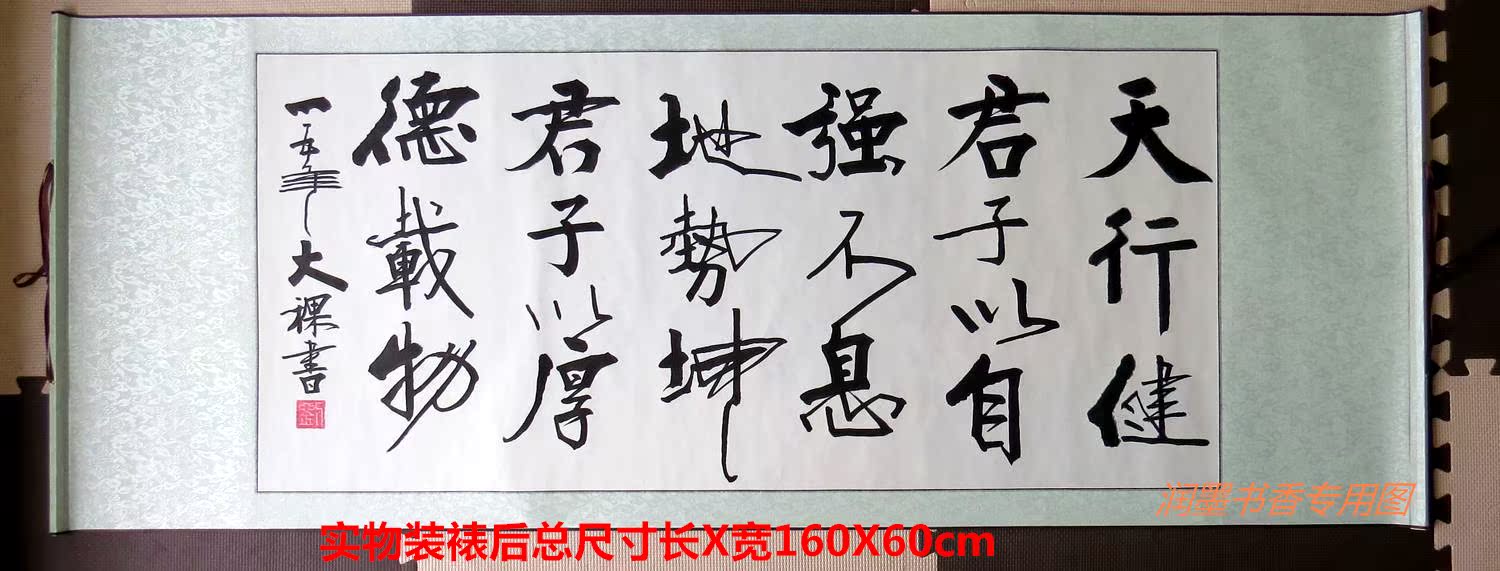 天行健
君子以自
强不息
地勢坤
君子以厚
德載物
大裸書
润墨书香专用图
实物装裱后总尺寸长X宽160X60cm